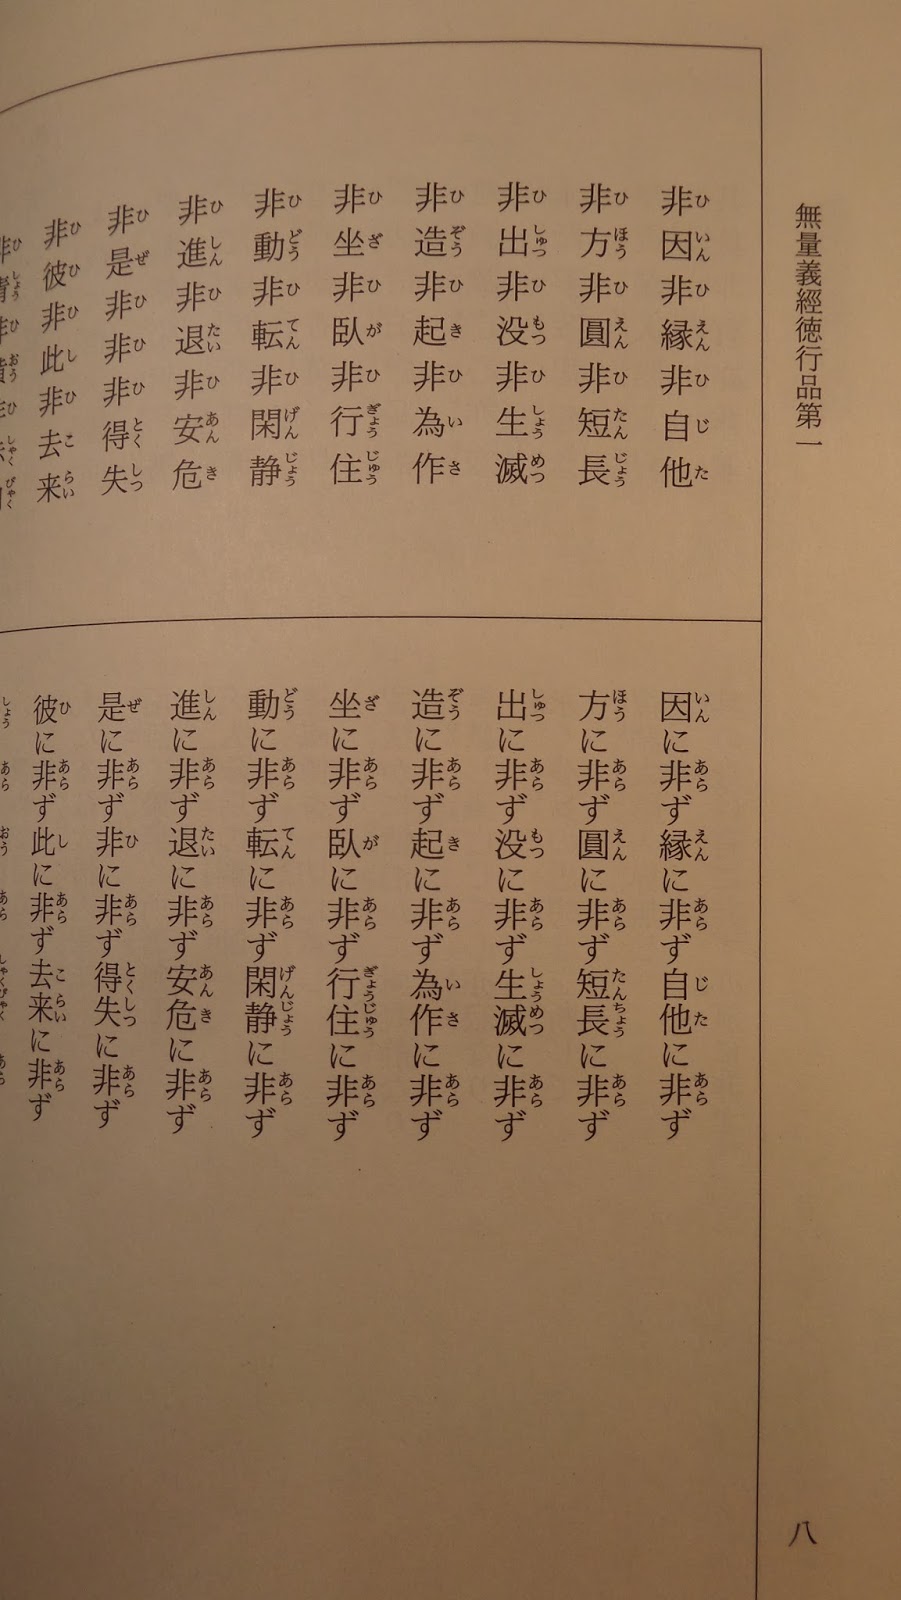 無量義經徳行品第一
非因非縁非自他
非方非圓非短長
非出非没非生滅
非造非起非為作
非坐非臥非行住
非動非転非閑静
非進非退非安危
非是非非非得失
非彼非此非去来
因に非ず縁に非ず自他に非ず
方に非ず圓に非ず短長に非ず
出に非ず没に非ず生滅に非ず
造に非ず起に非ず為作に非ず
坐に非ず臥に非ず行住に非ず
動に非ず転に非ず閑静に非ず
進に非ず退に非ず安危に非ず
是に非ず非に非ず得失に非ず
彼に非ず此に非ず去来に非ず
八